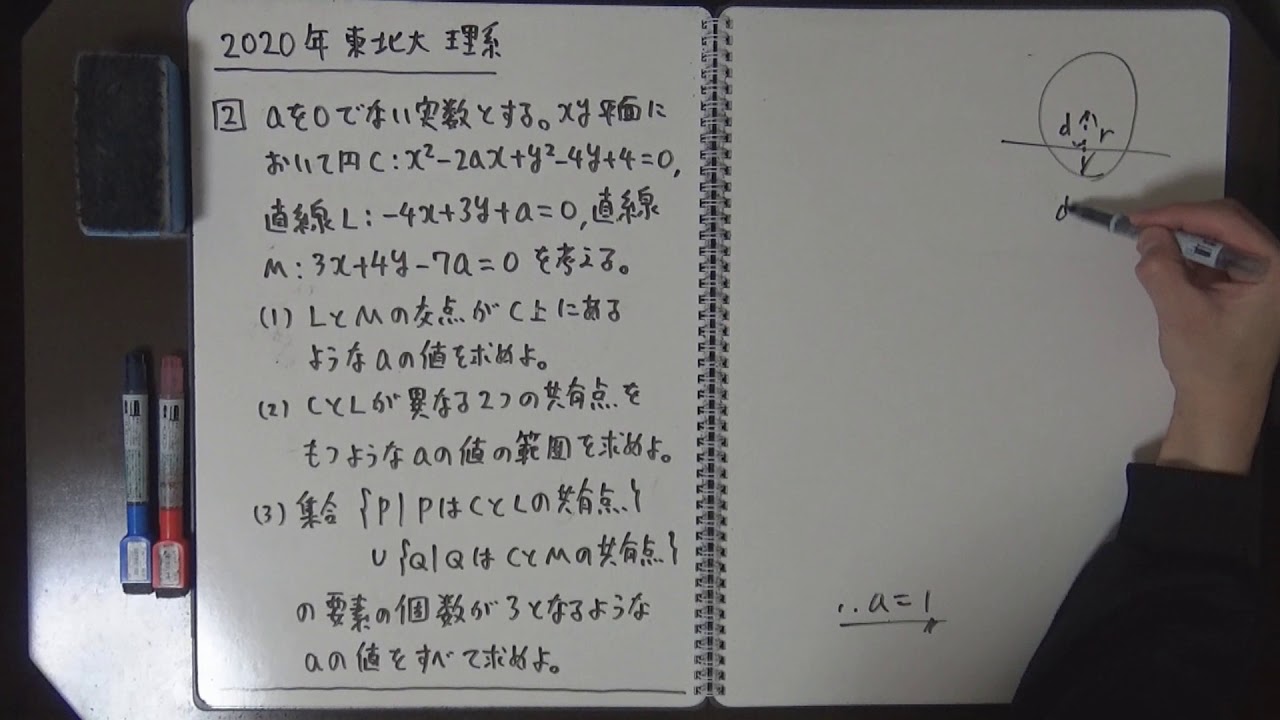 2020年 東北大 理系
2 aを0でない実数とする。xy平面に
おいて円C:x²-2ax+y²-4y+4=0,
直線L:-4x+3y+a=0,直線
M:3x+4y-7a=0を考える。
(1) LとMの交点がC上にある
ようなaの値を求めよ。
(2) CとLが異なる2つの共有点を
もつようなaの値の範囲を求めよ。
(3) 集合 {P|PはCとLの共有点}
∪{Q|QはCとMの共有点}
の要素の個数が3となるような
aの値をすべて求めよ。
d r
d
∴a=1